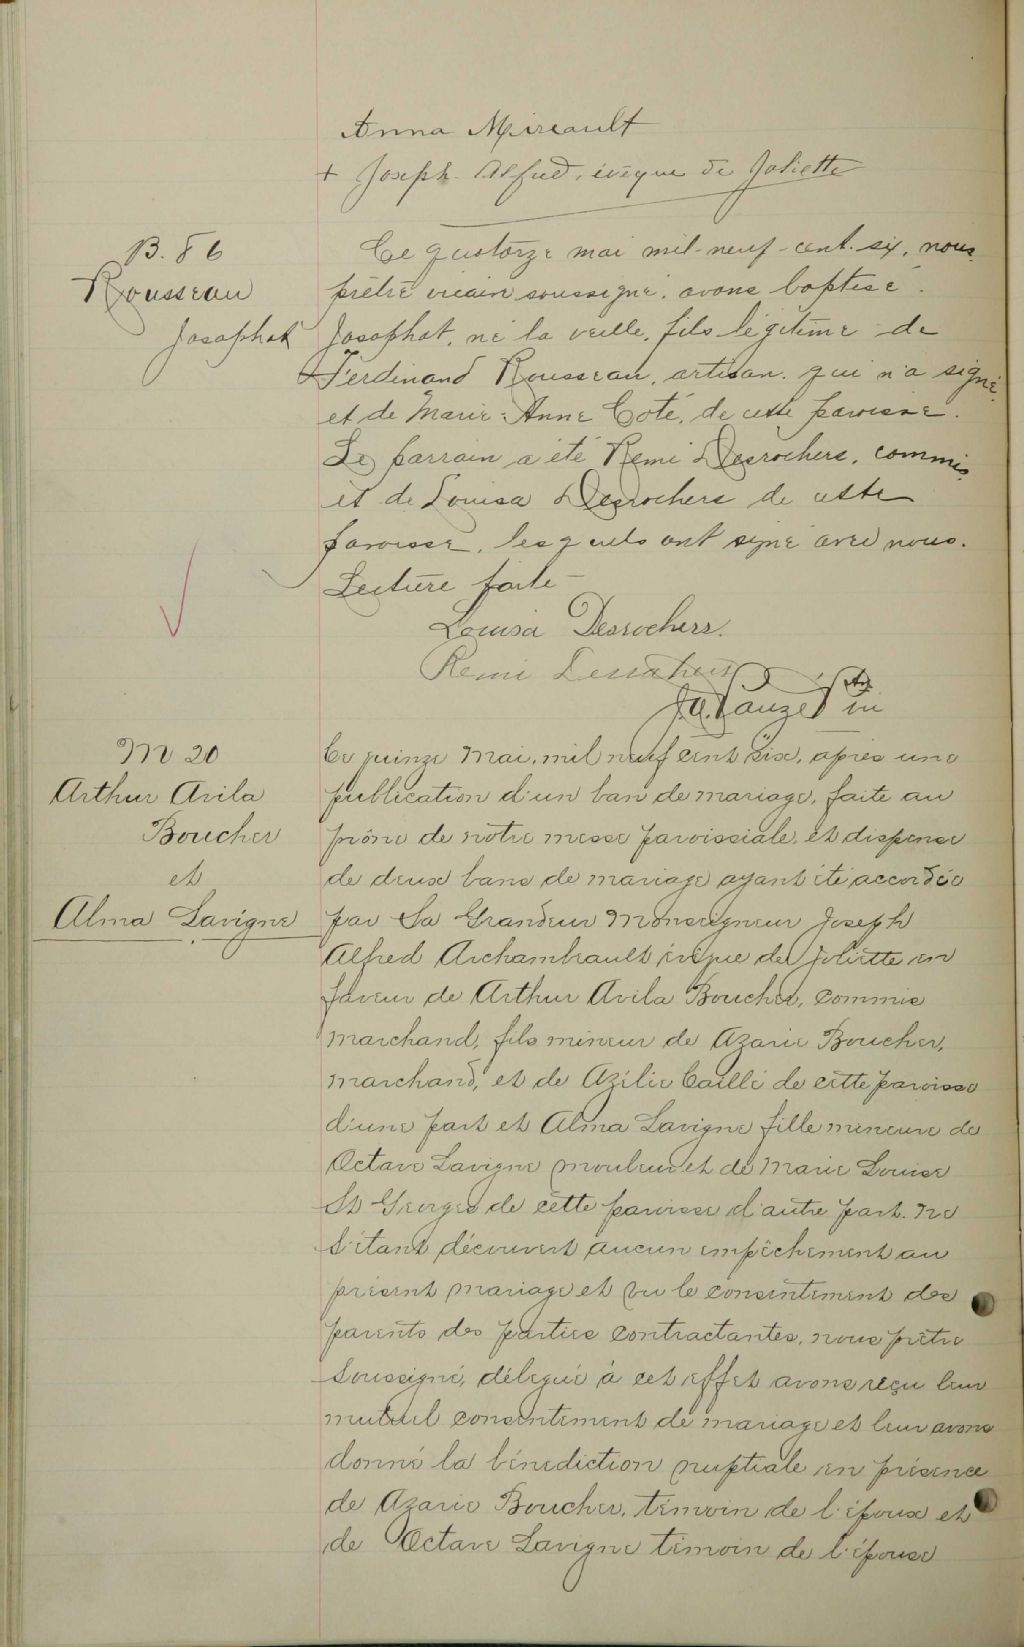 Anna Mireault
+ Joseph Alfred, évêque de Joliette
B. 86
Rousseau
Josaphat
Ce quatorze mai mil-neuf-cent-six, nous
prêtre vicaire soussigné, avons baptisé
Josaphat, né la veille, fils légitime de
Ferdinand Rousseau, artisan, qui n'a signé
et de Marie-Anne Coté, de cette paroisse.
Le parrain a été Remi Desrochers, commis,
et de Louisa Desrochers de cette
paroisse, lesquels ont signé avec nous.
Lecture faite -
Louisa Desrochers.
Remi Desrochers
Ptre
M 20
Arthur Avila
Boucher
et
Alma Lavigne
Ce quinze Mai, mil neuf cent six, après une
publication d'un ban de mariage, faite au
prône de notre messe paroissiale, et dispense
de deux bans de mariage ayant été accordée
par Sa Grandeur Monseigneur Joseph
Alfred Archambeault évêque de Joliette en
faveur de Arthur Avila Boucher, commis
marchand, fils mineur de Azarie Boucher,
marchand, et de Azélie Caillé de cette paroisse
d'une part et Alma Lavigne fille mineure de
Octave Lavigne mouleur et de Marie Louise
St Georges de cette paroisse d'autre part. Ne
s'étant découvert aucun empêchement au
présent mariage et vu le consentement des
parents des parties contractantes, nous prêtre
soussigné, délégué à cet effet avons reçu leur
mutuel consentement de mariage et leur avons
donné la bénédiction nuptiale en présence
de Azarie Boucher, témoin de l'époux et
de Octave Lavigne témoin de l'épouse